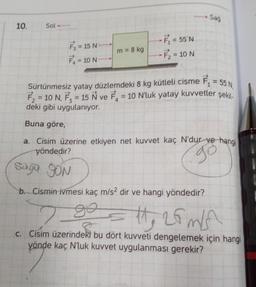 10.
Sol
Sağ
F₃ = 15 N
F₁ = 55 N
m = 8 kg
F₄ = 10 N
F₂ = 10 N
Sürtünmesiz yatay düzlemdeki 8 kg kütleli cisme F₁ = 55 N,
F₂ = 10 N, F₃ = 15 N ve F₄ = 10 N'luk yatay kuvvetler şekil-
deki gibi uygulanıyor.
Buna göre,
a. Cisim üzerine etkiyen net kuvvet kaç N'dur ve hangi
yöndedir?
90
sağa 90N
b. Cismin ivmesi kaç m/s² dir ve hangi yöndedir?
90
= 11,25 m/s²
c. Cisim üzerindeki bu dört kuvveti dengelemek için hangi
yönde kaç N'luk kuvvet uygulanması gerekir?